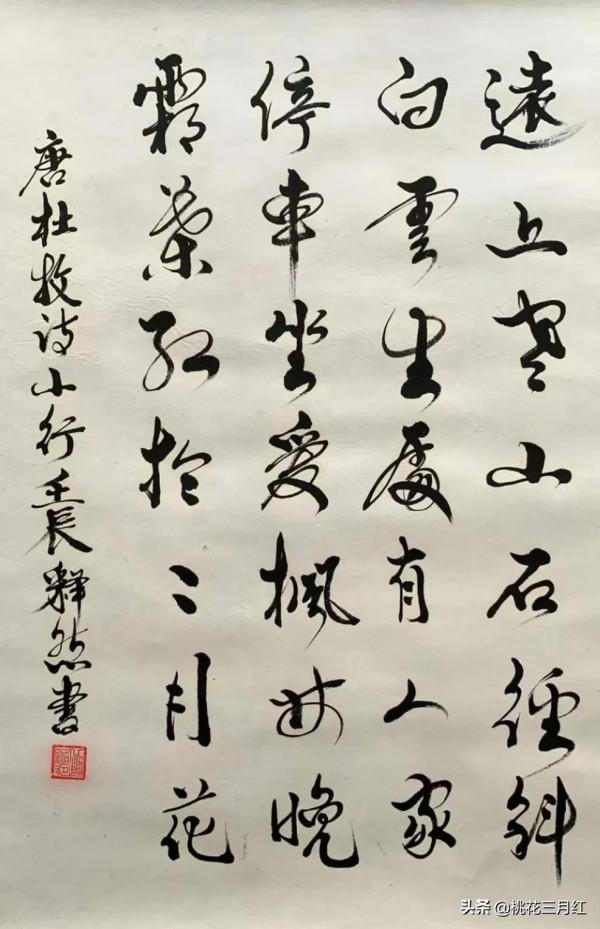 遠上寒山石徑斜
白雲生處有人家
停車坐愛楓林晚
霜葉紅於二月花
唐杜牧詩小行壬辰釋然書
头条 @桃花三月红